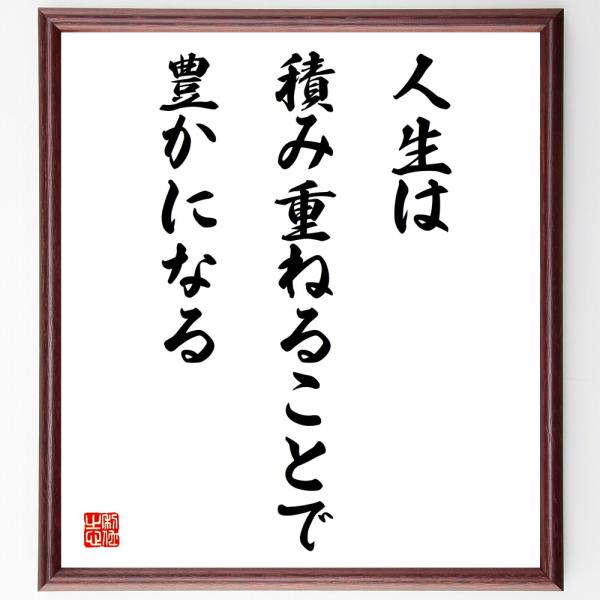 人生は
積み重ねることで
豊かになる